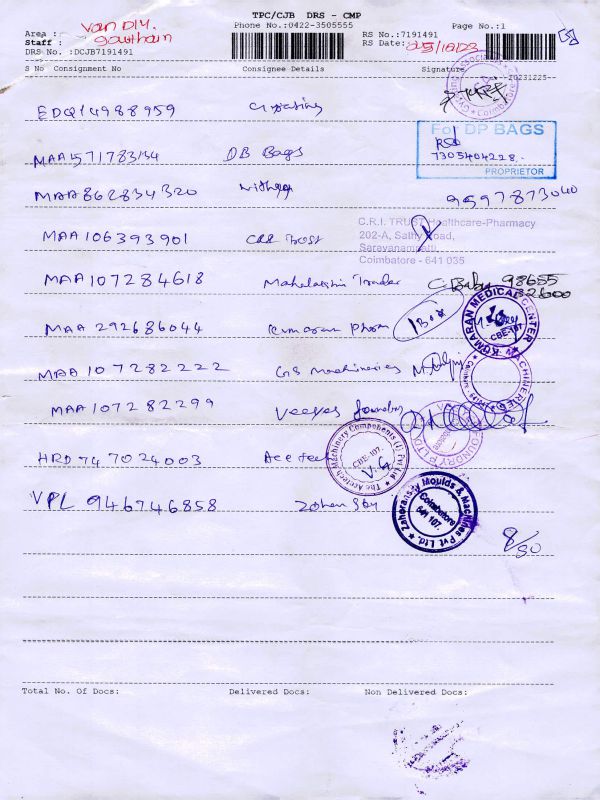 TPC/CJB DRS - CMP
Phone No.:0422-3505555 Page No.:1
Area : Van DLY.
Staff : gowtham
RS No.:7191491
RS Date:
DRS No. :DCJB7191491
S No Consignment No Consignee Details Signature 20231225
EDQ14988959
MAA1571783134 DB Bags
For DP BAGS
7305404228.
PROPRIETOR
MAA862834320 9597873040
MAA106393901 CRI Trust
C.R.I. TRUST Healthcare-Pharmacy
202-A, Sathy Road,
Saravanampatti,
Coimbatore - 641 035
MAA107284618 Mahalakshmi Trader 98655
32600
MAA 292686044 Kumaran Pharm 1 Box
KUMARAN MEDICAL CENTER
CBE-107
MAA 107282222 GS Machineries
MAA 107282299 Veeyes foundry
HRD747024003 Ace tech
The Acetech Machinery Components (I) Pvt Ltd
CBE-107.
VPL 946746858
Zahoransky Moulds & Machines Pvt Ltd.
Coimbatore
641 107.
8/30
Total No. Of Docs: Delivered Docs: Non Delivered Docs: